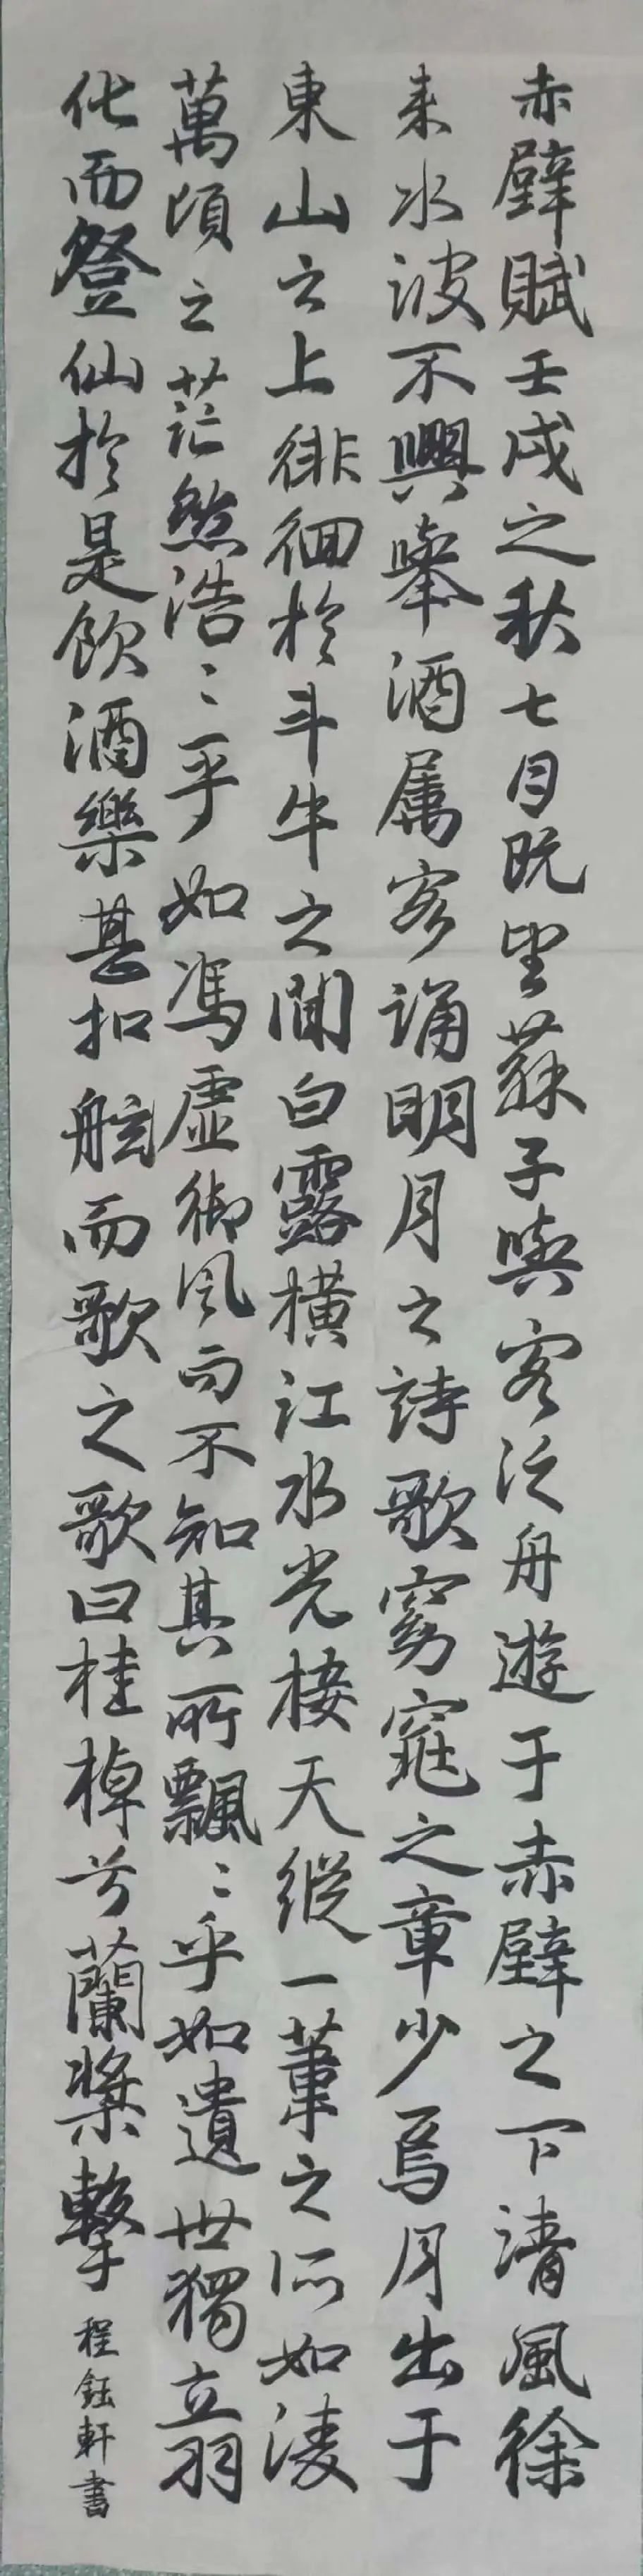 赤壁賦壬戌之秋七月既望蘇子與客泛舟遊于赤壁之下清風徐
来水波不興舉酒属客誦明月之詩歌窈窕之章少焉月出于
東山之上徘徊於斗牛之間白露橫江水光接天縱一葦之所如淩
萬頃之茫然浩〻乎如馮虛御風而不知其所飄〻乎如遺世獨立羽
化而登仙於是飲酒樂甚扣舷而歌之歌曰桂棹兮蘭槳擊
程鈺軒書